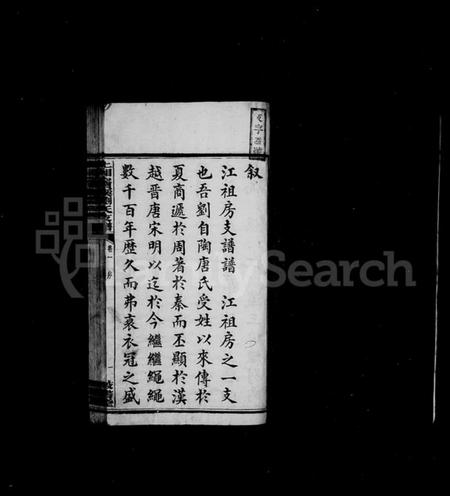 叙
江祖房支譜譜　江祖房之一支
也吾劉自陶唐氏受姓以來傳於
夏商遞於周著於秦而丕顯於漢
越晉唐宋明以迄於今繼繼繩繩
數千百年歷久而弗衰衣冠之盛
FamilySearch